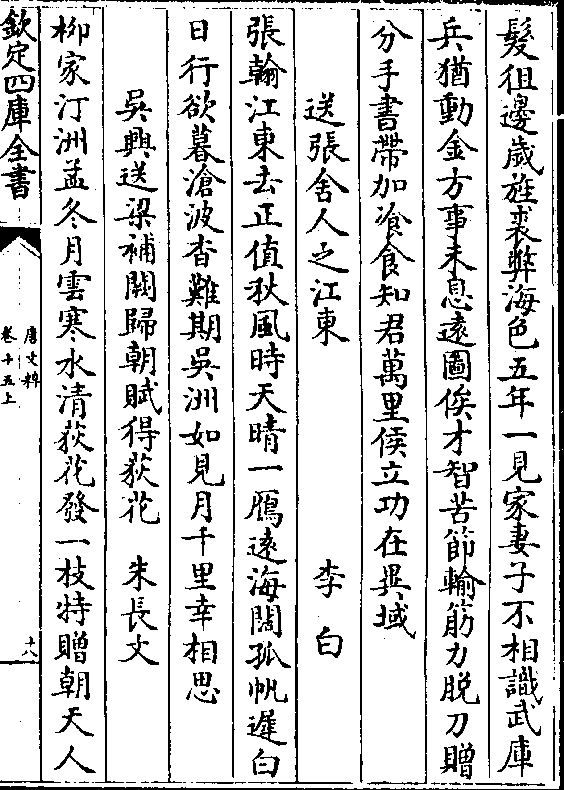 髮徂邊歲旌裘弊海色五年一見家妻子不相識武庫
兵猶動金方事未息遠圖俟才智苦節輸筋力脱刀贈
分手書帶加飡食知君萬里侯立功在異域
送張舍人之江東 李白
張翰江東去正值秋風時天晴一鴈遠海闊孤帆遲白
日行欲暮滄波杳難期吳洲如見月千里幸相思
吳興送梁補闕歸朝賦得荻花 朱長文
柳家汀洲孟冬月雲寒水清荻花發一枝持贈朝天人
欽定四庫全書
唐文粹
卷十五上
十八